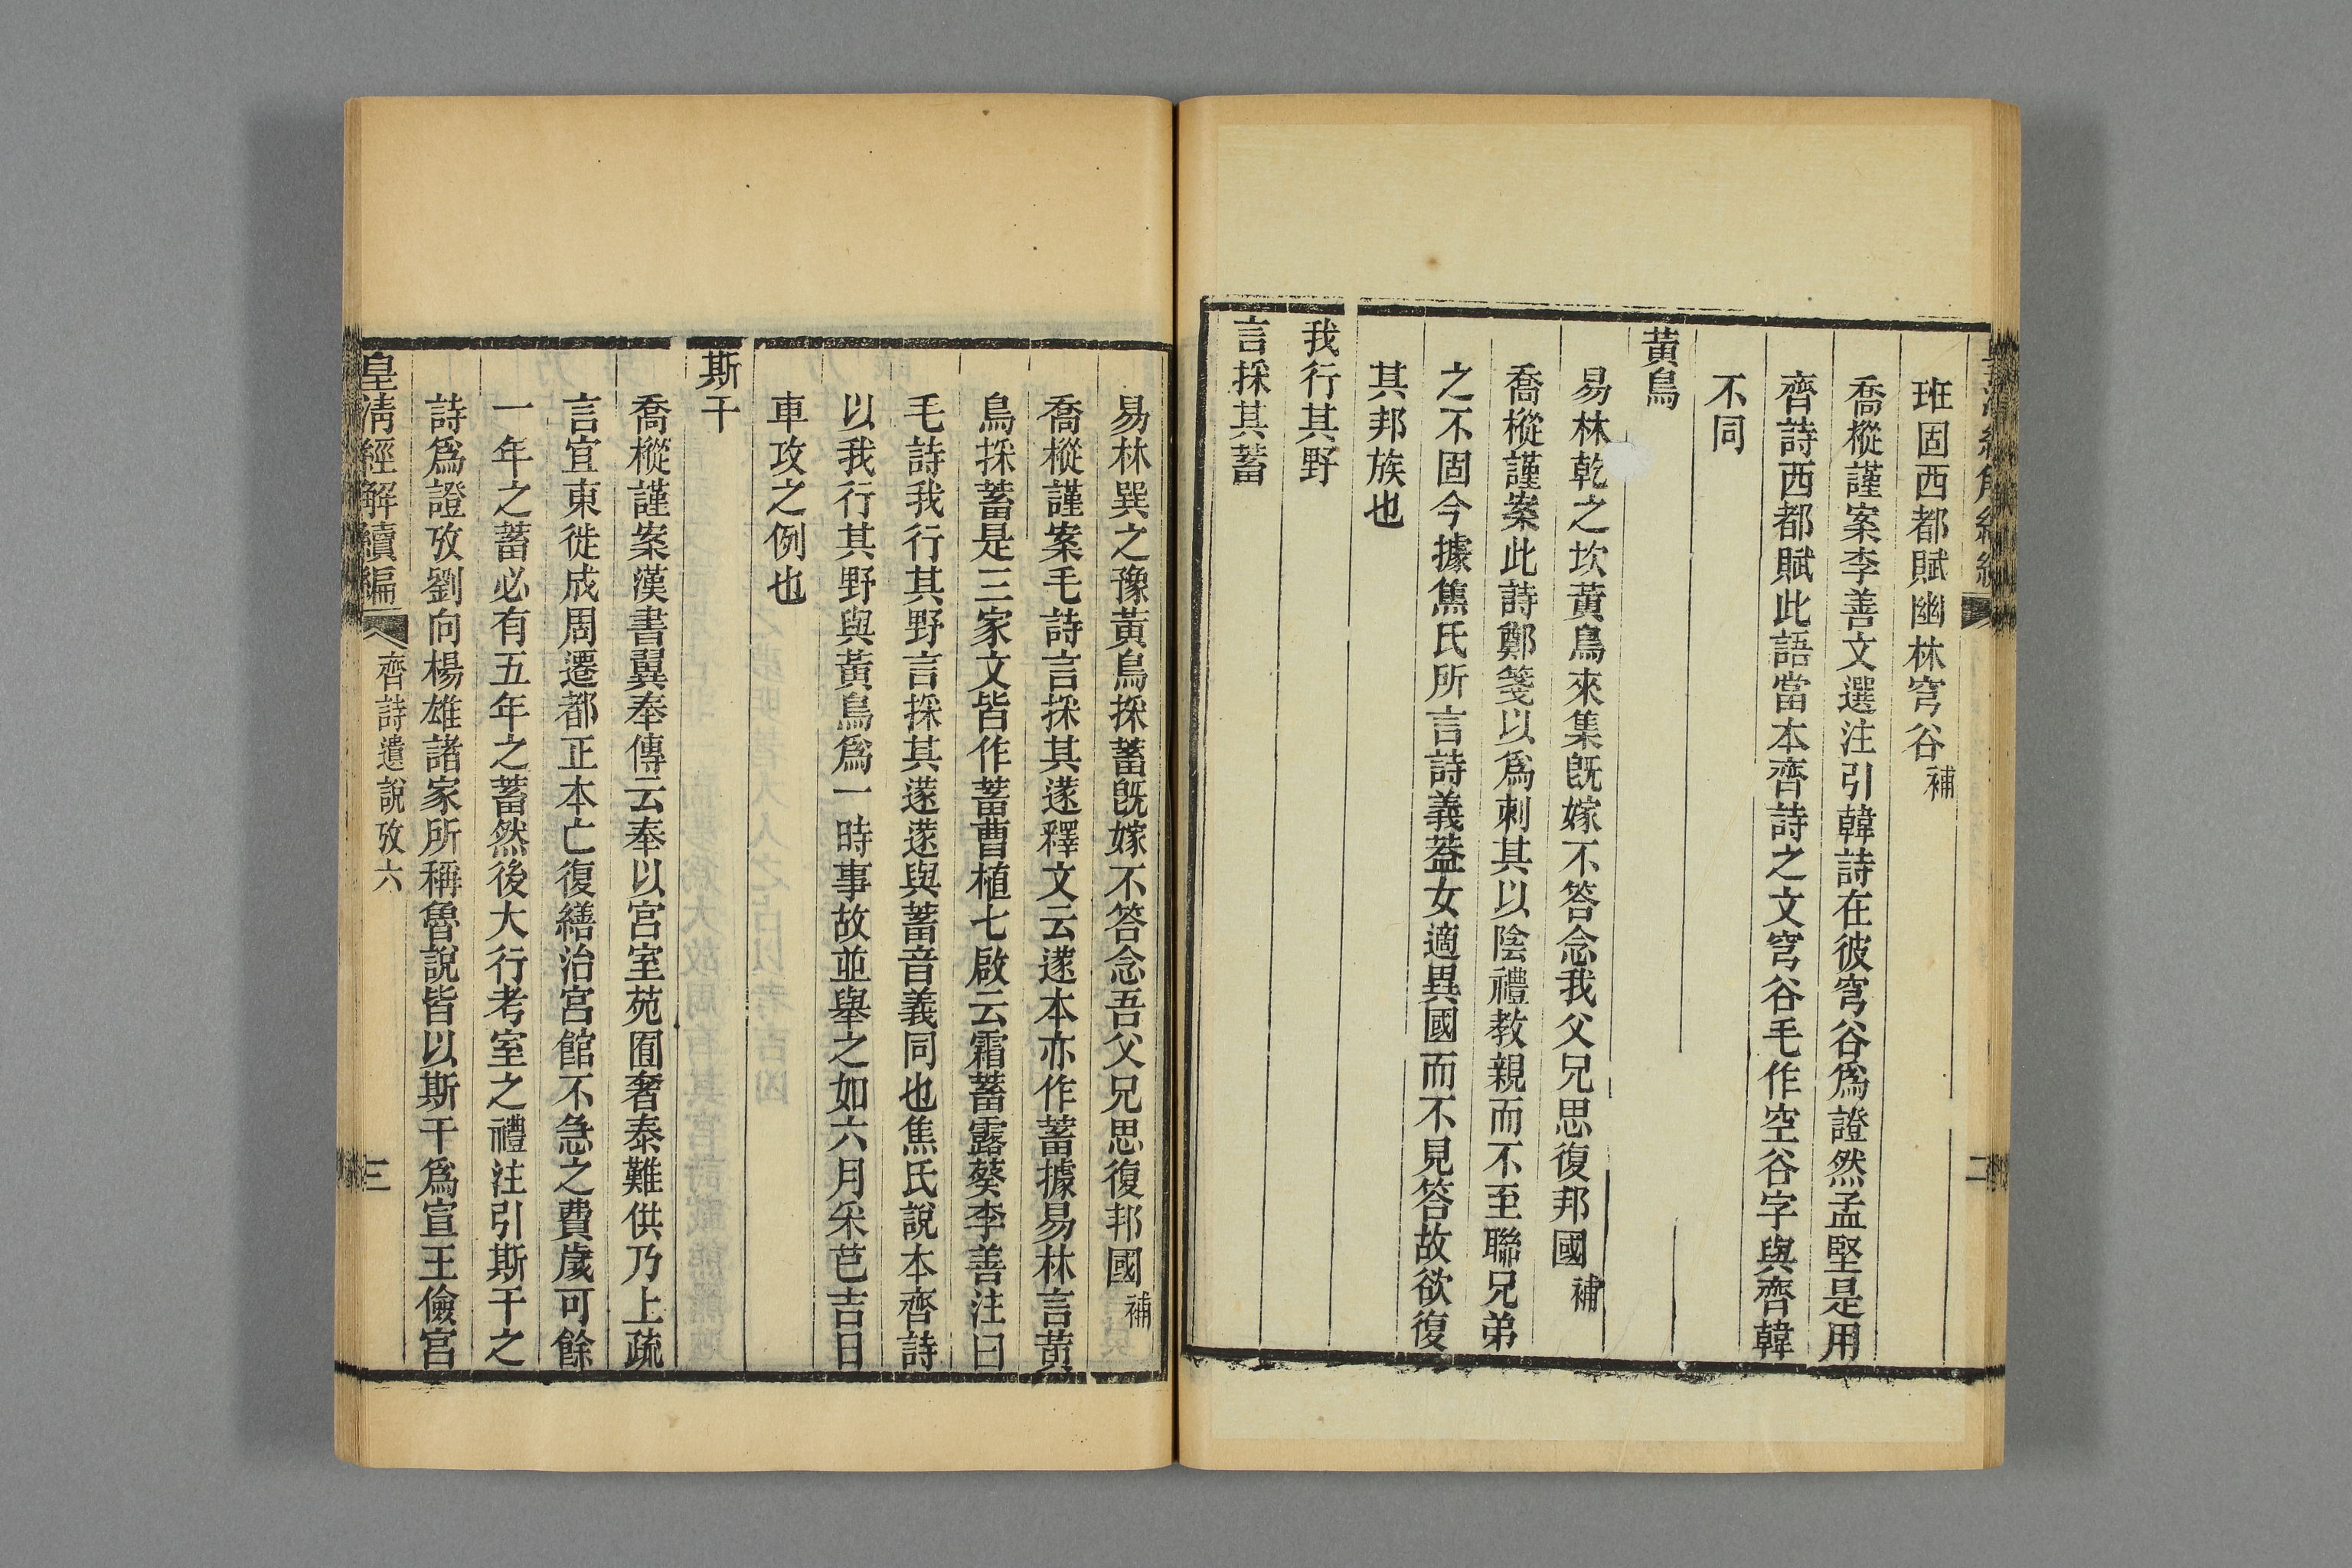 班固西都賦幽林穹谷補
喬樅謹案李善文選注引韓詩在彼穹谷爲證然孟堅是用
齊詩西都賦此語當本齊詩之文穹谷毛作空谷字與齊韓
不同
黃鳥
易林乾之坎黃鳥來集旣嫁不答念我父兄思復邦國補
喬樅謹案此詩鄭箋以爲刺其以陰禮教親而不至聯兄弟
之不固今據焦氏所言詩義葢女適異國而不見答故欲復
其邦族也
我行其野
言採其蓄
二
易林巽之豫黃鳥採蓄旣嫁不答念吾父兄思復邦國補
喬樅謹案毛詩言採其蓫釋文云蓫本亦作蓄據易林言黃
鳥採蓄是三家文皆作蓄曹植七啟云霜蓄露葵李善注曰
毛詩我行其野言採其蓫蓫與蓄音義同也焦氏說本齊詩
以我行其野與黃鳥爲一時事故並舉之如六月采芑吉日
車攻之例也
斯干
喬樅謹案漢書翼奉傳云奉以宮室苑囿奢泰難供乃上疏
言宜東徙成周遷都正本亡復繕治宮館不急之費歲可餘
一年之蓄必有五年之蓄然後大行考室之禮注引斯干之
詩爲證攷劉向楊雄諸家所稱魯說皆以斯干爲宣王儉宮
皇清經解續編
齊詩遺說攷六
三